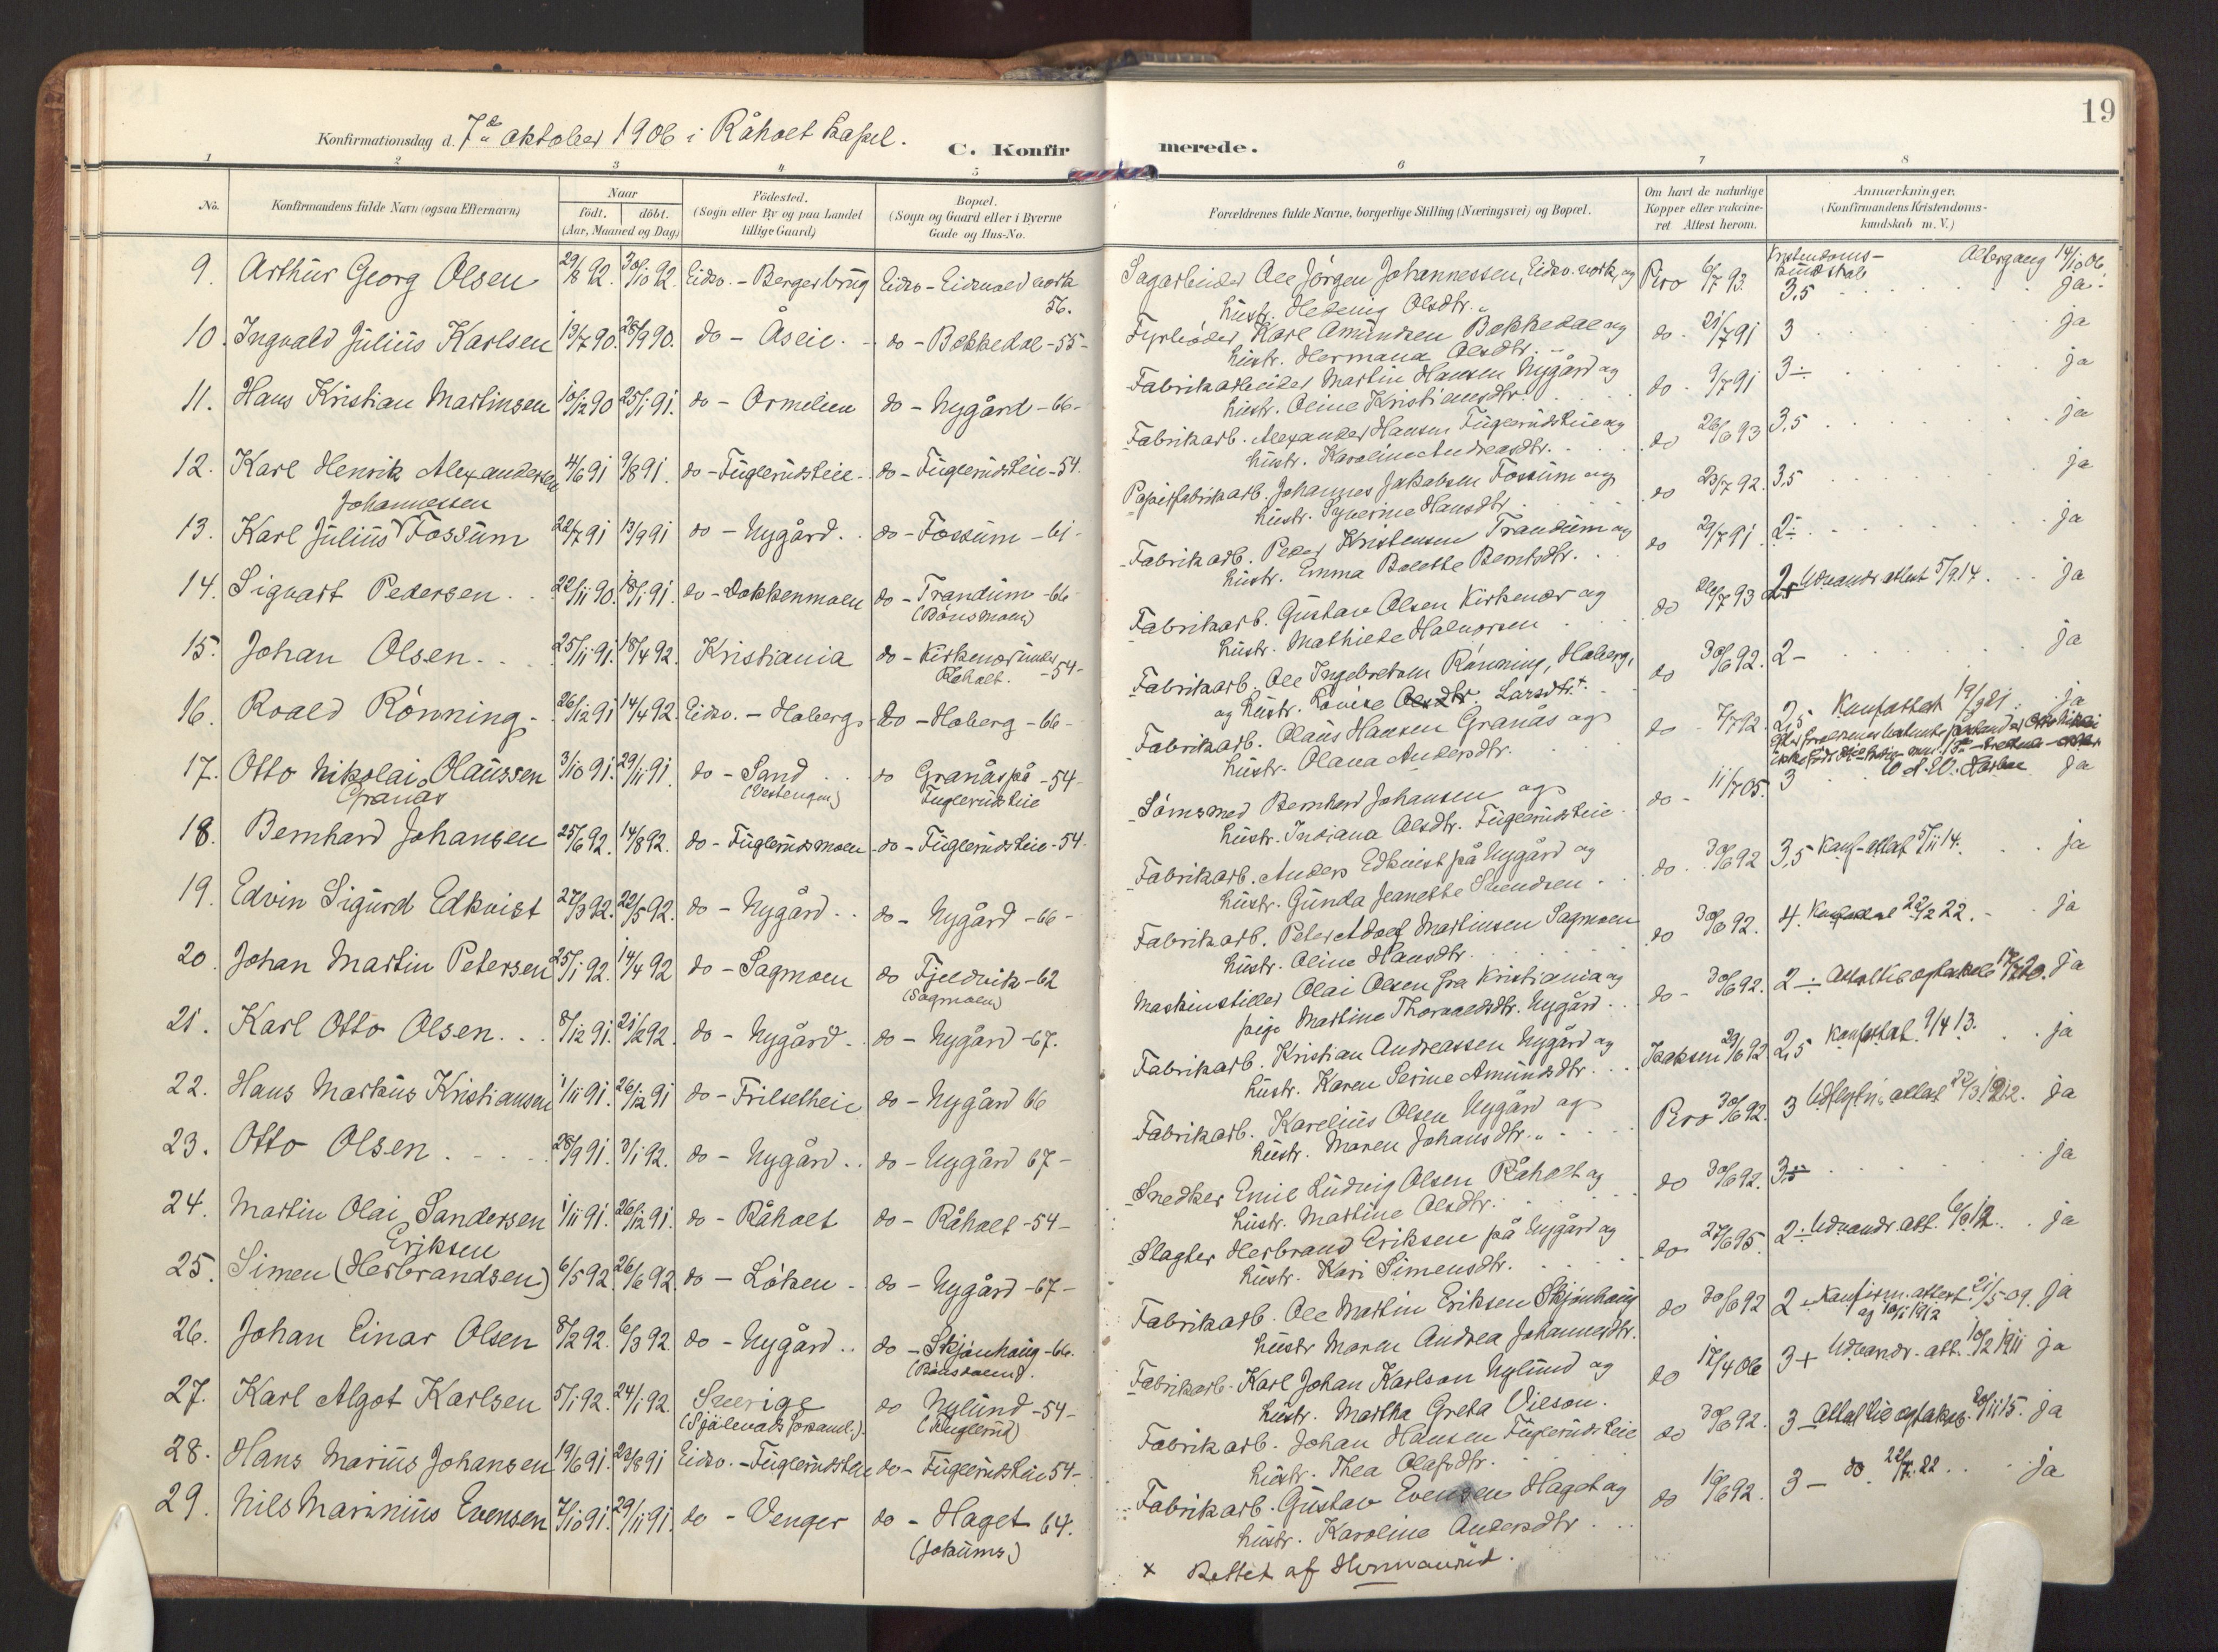 19
Konfirmationsdag d. 7de oktober 1906 i Råholt kapel.
C. Konfirmerede.
1 2 3 4 5 6 7 8
No.
Konfirmandens fulde Navn (ogsaa Efternavn)
Naar
født. døbt.
(Aar, Maaned og Dag)
Fødested.
(Sogn eller By og paa Landet
tillige Gaard)
Bopæl.
(Sogn og Gaard eller i Byerne
Gade og Hus-No.
Forældrenes fulde Navne, borgerlige Stilling (Næringsvei) og Bopæl.
Om havt de naturlige
Kopper eller vakcine-
ret Attest herom.
Anmærkninger.
(Konfirmandens Kristendoms-
kundskab m. V.)
Kristendoms-
kundskab
Altergang 14/10 06.
9. Arthur Georg Olsen 29/8 92. 30/10 92. Eidsv. - Bergerbrug Eidsv - Eidsvold værk 56.
Sagarbeider Ole Jörgen Johannessen, Eidsv. værk, og
hustr. Hedevig Olsdtr.
Pro 6/7 93. 3,5 ja
10. Ingvald Julius Karlsen 13/7 90. 28/9 90. do - Åseie. do - Bekkedal - 55 -
Fyrbøder Karl Amundsen Bekkedal og
hustr. Hermana Olsdtr.
do. 21/7 91 3 ja
11. Hans Kristian Martinsen 10/12 90 25/1 91. do - Ormelien do - Nygård - 66 -
Fabrikarbeider Martin Hansen Nygård og
hustr. Oline Kristiansdtr.
do. 9/7 91 3÷ ja
12. Karl Henrik Alexandersen 4/6 91 9/8 91. do - Fuglerudseie do - Fuglerudseie - 54.
Fabrikarb. Alexander Hansen Fuglerudseie og
hustr. Karoline Andreasdtr.
do 26/6 93 3,5 ja
13. Karl Julius Johannessen Fossum 22/7 91 13/9 91 do - Nygård. do - Fossum - 61 -
Papirfabrikarb. Johannes Jakobsen Fossum og
hustr. Syverine Hansdtr.
do 23/7 92. 3,5 ja
14. Sigvart Pedersen 22/11 90. 18/1 91. do - Dokkenmoen do - Trandum - 66
(Bönsmoen)
Fabrikarb. Peder Kristensen Trandum og
hustr. Emma Bolette Berntsdtr.
do 29/7 91. 2÷ ja
15. Johan Olsen 25/11 91. 18/4 92. Kristiania do - Kirkenær under
Råholt. - 54 -
Fabrikarb. Gustav Olsen Kirkenær og
hustr. Mathilde Halvorsen
do 26/7 93 2,5 Udvandr. attest 5/9.14. ja
16. Roald Rönning 26/12 91 14/4 92. Eidsv. - Hoberg do - Hoberg - 66 -
Fabrikarb. Ole Ingebretsen Rönning, Hoberg,
og hustr. Lovise Olsdtr Larsdtr. +
do 30/6 92. 2 - ja
17. Otto Nikolai Olaussen
Granås
3/10 91. 29/11 91. do - Sand
(Vestengen)
do Granås på - 54 -
Fuglerudseie
Fabrikarb. Olaus Hansen Granås og
hustr. Olava Andersdtr.
do - 7/7 92. 2,5 Konf.attest ja
18. Bernhard Johansen 25/6 92. 14/8 92. do - Fuglerudsmoen do - Fuglerudseie - 54 -
Sömsmed Bernhard Johansen og
hustr. Indiana Olsdtr. Fuglerudseie
do - 11/7 05. 3 ja
19. Edvin Sigurd Edkvist 27/3 92. 22/5 92. do - Nygård do - Nygård - 66 -
Fabrikarb. Anders Edkvist på Nygård og
hustr. Gunda Jeanette Svendsen.
do. 30/6 92 3,5 Konf-attest 5/11 14. ja
20. Johan Martin Petersen 25/1 92. 14/4 92 do - Sagmoen do Fjeldvik - 62
(Sagmoen)
Fabrikarb. Peter Adolf Martinsen Sagmoen
hustr. Oline Hansdtr.
do 30/6 92. 4. 22/2 22. ja
21. Karl Otto Olsen 8/12 91. 21/2 92. do - Nygård do - Nygård - 67.
Maskinstiller Olai Olsen fra Kristiania og
pige Martine Thorvaldsdtr. Nygård
do - 30/6 92. 2÷ ja
22. Hans Markus Kristiansen 1/11 91. 26/12 91 do - Frilsetheie do - Nygård 66
Fabrikarb. Kristian Andreassen Nygård og
hustr. Karen Serine Amundsdtr.
Isaksen 29/6 92 2,5 Konf.attest 9/4 13. ja
23. Otto Olsen 28/9 91. 3/1 92. do - Nygård do - Nygård 67 -
Fabrikarb. Karelius Olsen Nygård og
hustr. Maren Johansdtr.
Pro 30/6 92. 3 Udflytn. attest 22/3 1912. ja
24. Martin Olai Sandersen 1/11 91. 26/12 91. do - Råholt do - Råholt - 54 -
Snedker Emil Ludvig Olsen Råholt og
hustr. Martine Olsdtr.
do 30/6 92. ja
25. Simen (Herbrandsen) Eriksen 6/5 92. 26/6 92. do - Löken do - Nygård - 67 -
Slagter Herbrand Eriksen på Nygård og
hustr. Kari Simensdtr.
do 27/6 95. 2÷ Udvandr. att. ja
26. Johan Einar Olsen 8/2 92. 6/3 92. do - Nygård do - Skjönhaug - 66.
(Bönsmoen).
Fabrikarb. Ole Martin Eriksen Skjönhaug
hustr Maren Andrea Johannesdtr.
do 30/6 92 2 Konfirm.attest 21/5 - 09. ja
27. Karl Algot Karlsen 5/1 92. 24/1 92. Sverige
(Själevads forsaml.)
do Nylund - 54 -
(Fuglerud)
Fabrikarb. Karl Johan Karlson Nylund og
hustr. Martha Greta Olsson.
do 17/4 06 3+ Udvandr. att. 10/2 1911 ja
28. Hans Marius Johansen 19/6 91. 23/8 91 Eidsv. - Fuglerudseie do - Fuglerudseie 54 -
Fabrikarb. Johan Hansen Fuglerudseie
hustr. Thea Olafsdtr.
do 30/6 92. 3 - ja
29. Nils Marinius Evensen 7/10 91. 29/11 91. do - Venger do - Haget 64.
(Jokums)
Fabrikarb. Gustav Evensen Haget og
hustr. Karoline Andersdtr.
do 10/6 92. 3 - do. ja
x Rettet af Hermanrud.